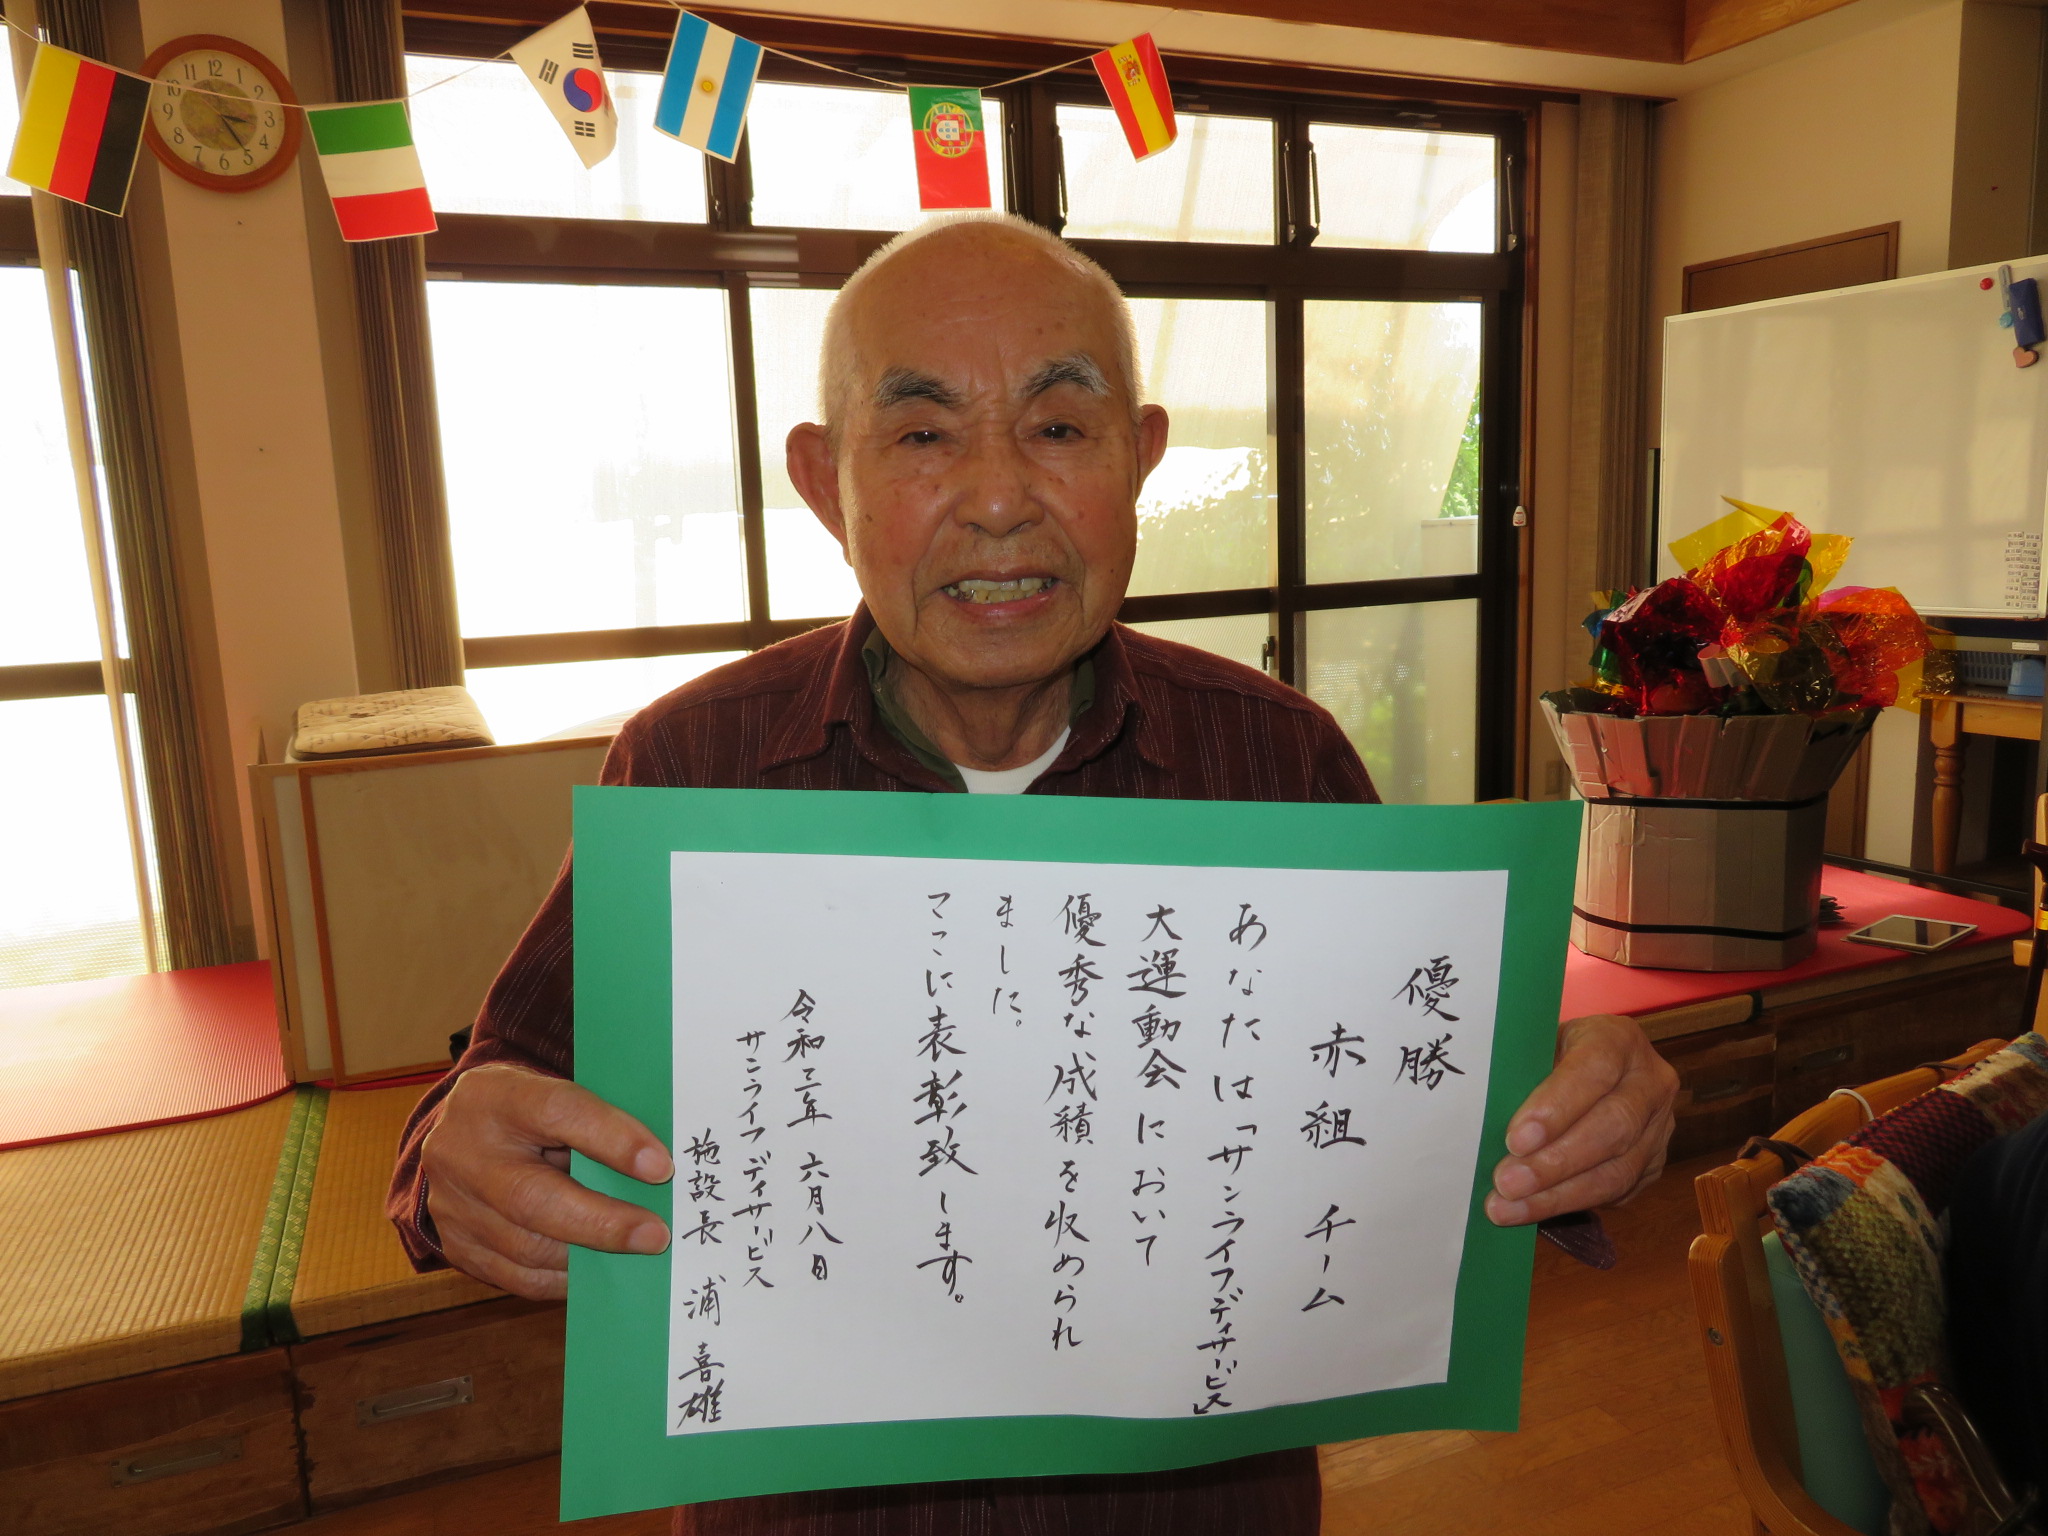 優勝
赤組 チーム
あなたは「サンライフディサービス」
大運動会において
優秀な成績を収められ
ました。
ここに表彰致します。
令和三年 六月八日
サンライフディサービス
施設長 浦 喜雄
10 11 12 1 2 3 4 5 6 7 8 9